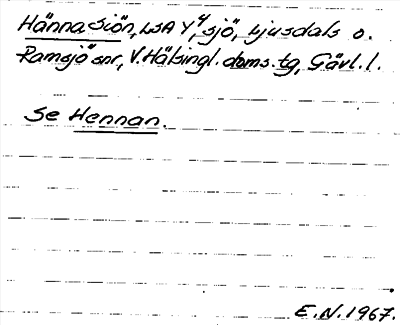 Hännasiön, LSA Y4, sjö, Ljusdals o.
Ramsjö snr, V. Hälsingl. doms. tg, Gävl. l.
Se Hennan.
E.N. 1967.